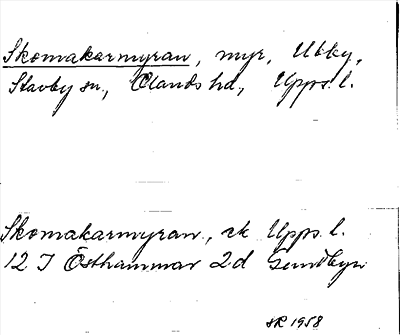 Skomakarmyran, myr, Ubby,
Stavby sn., Olands hd, Upps. l.
Skomakarmyran, ek Upps. l.
12 I Östhammar 2d
SR 1958